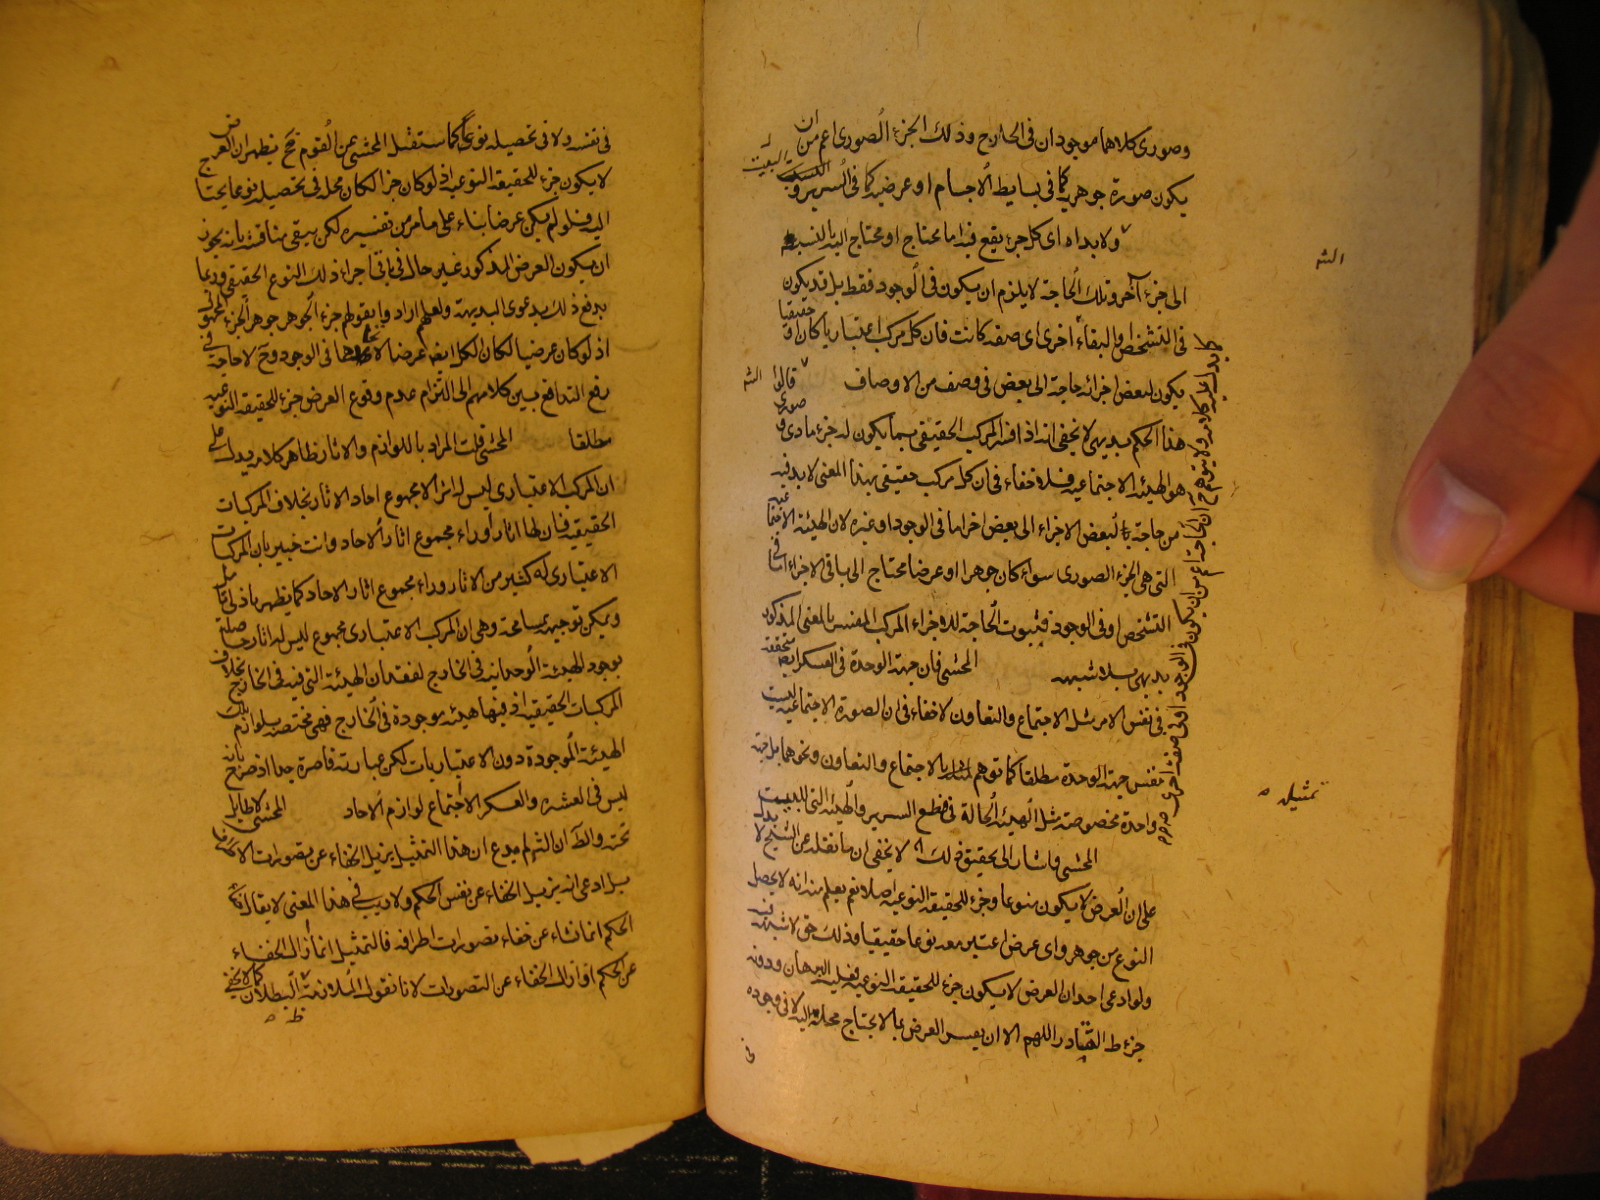 وصورى كلاهما موجودان فى الخارج وذلك الجزء الصورى اعم من ان
يكون صورة جوهرية كما فى بسايط الاجسام او عرضية كما فى السرير و البيت
ولابد اه اى كل جزء يقع فيه اما محتاج او محتاج اليه بالنسبة
الى جزء آخر وتلك الحاجة لا يلزم ان يكون فى الوجود فقط بل قد يكون
فى التشخص او البقاء او اخرى اى صفة كانت فان كل مركب اعتباريا كان او حقيقيا
يكون لبعض اجزائه حاجة الى بعض فى وصف من الاوصاف قالوا
هذا الحكم بديهى لا يخفى انه اذا فسر المركب الحقيقى بما يكون له جزء مادى و صورى
هو الهيئة الاجتماعية فلا خفاء فى ان كل مركب حقيقى بهذا المعنى لابد فيه
من حاجة لبعض الاجزاء الى بعض اخر اما فى الوجود او غيره لان الهيئة الاجتماعية
التى هى الجزء الصورى سواء كان جوهرا او عرضا محتاج الى باقى الاجزاء اما فى
التشخص او فى الوجود فثبوت الحاجة للاجزاء المركب المفسر بالمعنى المذكور
بديهى بلا شبهة المحشى فان جهة الوحدة فى العسكر ايضا متحققة
فى نفس الامر مثل الاجتماع والتعاون لا خفاء فى ان الصورة الاجتماعية ليست
نفس جهة الوحدة مطلقا كما توهم بالاجتماع والتعاون ونحوهما بل جهة
واحدة مخصوصة مثل الهيئة الحالة فى قطع السرير والهيئة التى للبيت
المحشى واشار الى تحقيق ذلك اه لا يخفى ان ما نقله عن الشيخ لا يدل
على ان العرض لا يكون نوعا وجزء للحقيقة النوعية اصلا نعم يعلم منه انه لا يحصل
النوع من جوهر واى عرض اعتبر معه نوعا حقيقيا وذلك حق لا شبهة فيه
ولو ادعى احد ان العرض لا يكون جزء للحقيقة النوعية فعليه البرهان ودونه
خرط القتاد اللهم الا ان يفسر العرض بما لا يحتاج محله اليه لا فى وجوده
فى
الشه
الشه
تمثيله
فى نفسه ولا فى تحصيله نوعا كما ستقل المحشى عن القوم فح يظهر ان العرض
لا يكون جزء للحقيقة النوعية اذ لو كان جزء لكان محله فى تحصيله نوعا يحتاج
اليه فلو لم يكن عرضا بناء على ما مر من تفسيره لكن يبقى مناقشة بانه يجوز
ان يكون العرض المذكور غير حال فى باقى اجزاء ذلك النوع الحقيقى وربما
يدفع ذلك بدعوى البديهة ولعلهم ارادوا بقولهم جزء الجوهر جوهر الجزء المحمول
اذ لو كان عرضيا لكان الكل ايضا عرضا لاتحادهما فى الوجود وح لا حاجة فى
رفع التدافع بين كلامهم الى التزام عدم وقوع العرض جزء للحقيقة النوعية
مطلقا المحشى قلت المراد باللوازم والاثار ظاهر كلامه يدل على
ان المركب الاعتبارى ليس له اثر الا مجموع احاد الاثار بخلاف المركبات
الحقيقية فان لها اثار وراء مجموع اثار الاحاد وانت خبير بان المركبات
الاعتبارى له كثير من الاثار وراء مجموع اثار الاحاد كما يظهر باذنى تأمل
ويمكن توجيهه بمسامحة وهى ان المركب الاعتبارى مجموع ليس له اثار حاصلة
بوجود الهيئة الوحدانية فى الخارج لفقدان الهيئة التى فيه فى الخارج بخلاف
المركبات الحقيقية اذ فيها هيئة موجودة فى الخارج فهى مختصة بلوازم تلك
الهيئة الموجودة دون الاعتباريات لكن عبارته قاصرة جدا اذ صرح بانه
ليس فى العشرة والعسكر الاجتماع لوازم الاحاد المحشى لا طايل
تحته والظ ان الشه لم يدع ان هذا التمثيل يزيل الخفاء عن تصورات الاطراف
بل ادعى انه يزيل الخفاء عن نفس الحكم ولا ريب فى هذا المعنى لا يقال
الحكم انما نشاء عن خفاء تصورات اطرافه فالتمثيل انما ازال الخفاء
عن الحكم او ازال الخفاء عن التصورات لانا نقول الملازمة البطلان كما لا يخفى